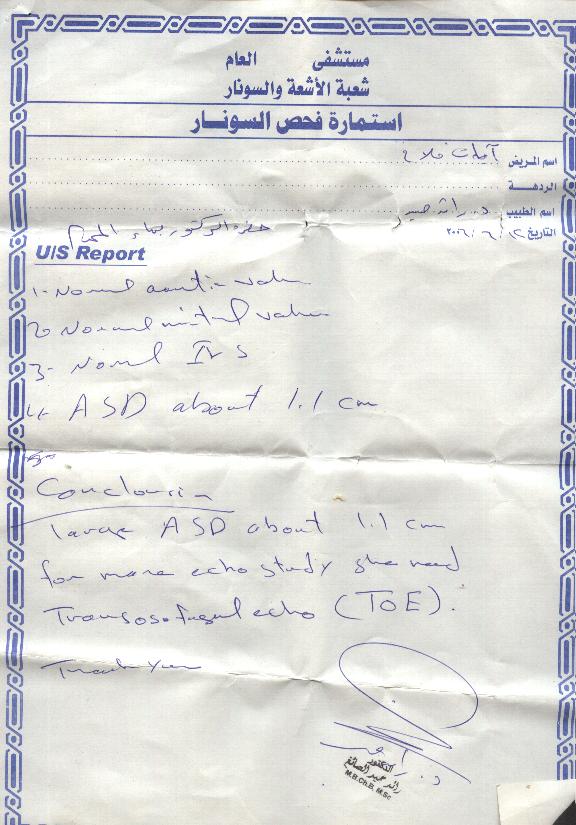 مستشفى العام
شعبة الأشعة والسونار
استمارة فحص السونـار
اسم المريض
الردهة
اسم الطبيب د. رائد حميد
التاريخ ١٢ / ٦ / ٢٠٠٦
حضرة الدكتور بهاء المحترم
U/S Report
1- Normal aortic valve
2- Normal mitral valve
3- Normal IVS
4- ASD about 1.1 cm
Conclusion
large ASD about 1.1 cm
for more echo study she need
Transosofageal echo (TOE).
Thank you
الدكتور
رائد حميد الصائغ
M.B.Ch.B. M.Sc